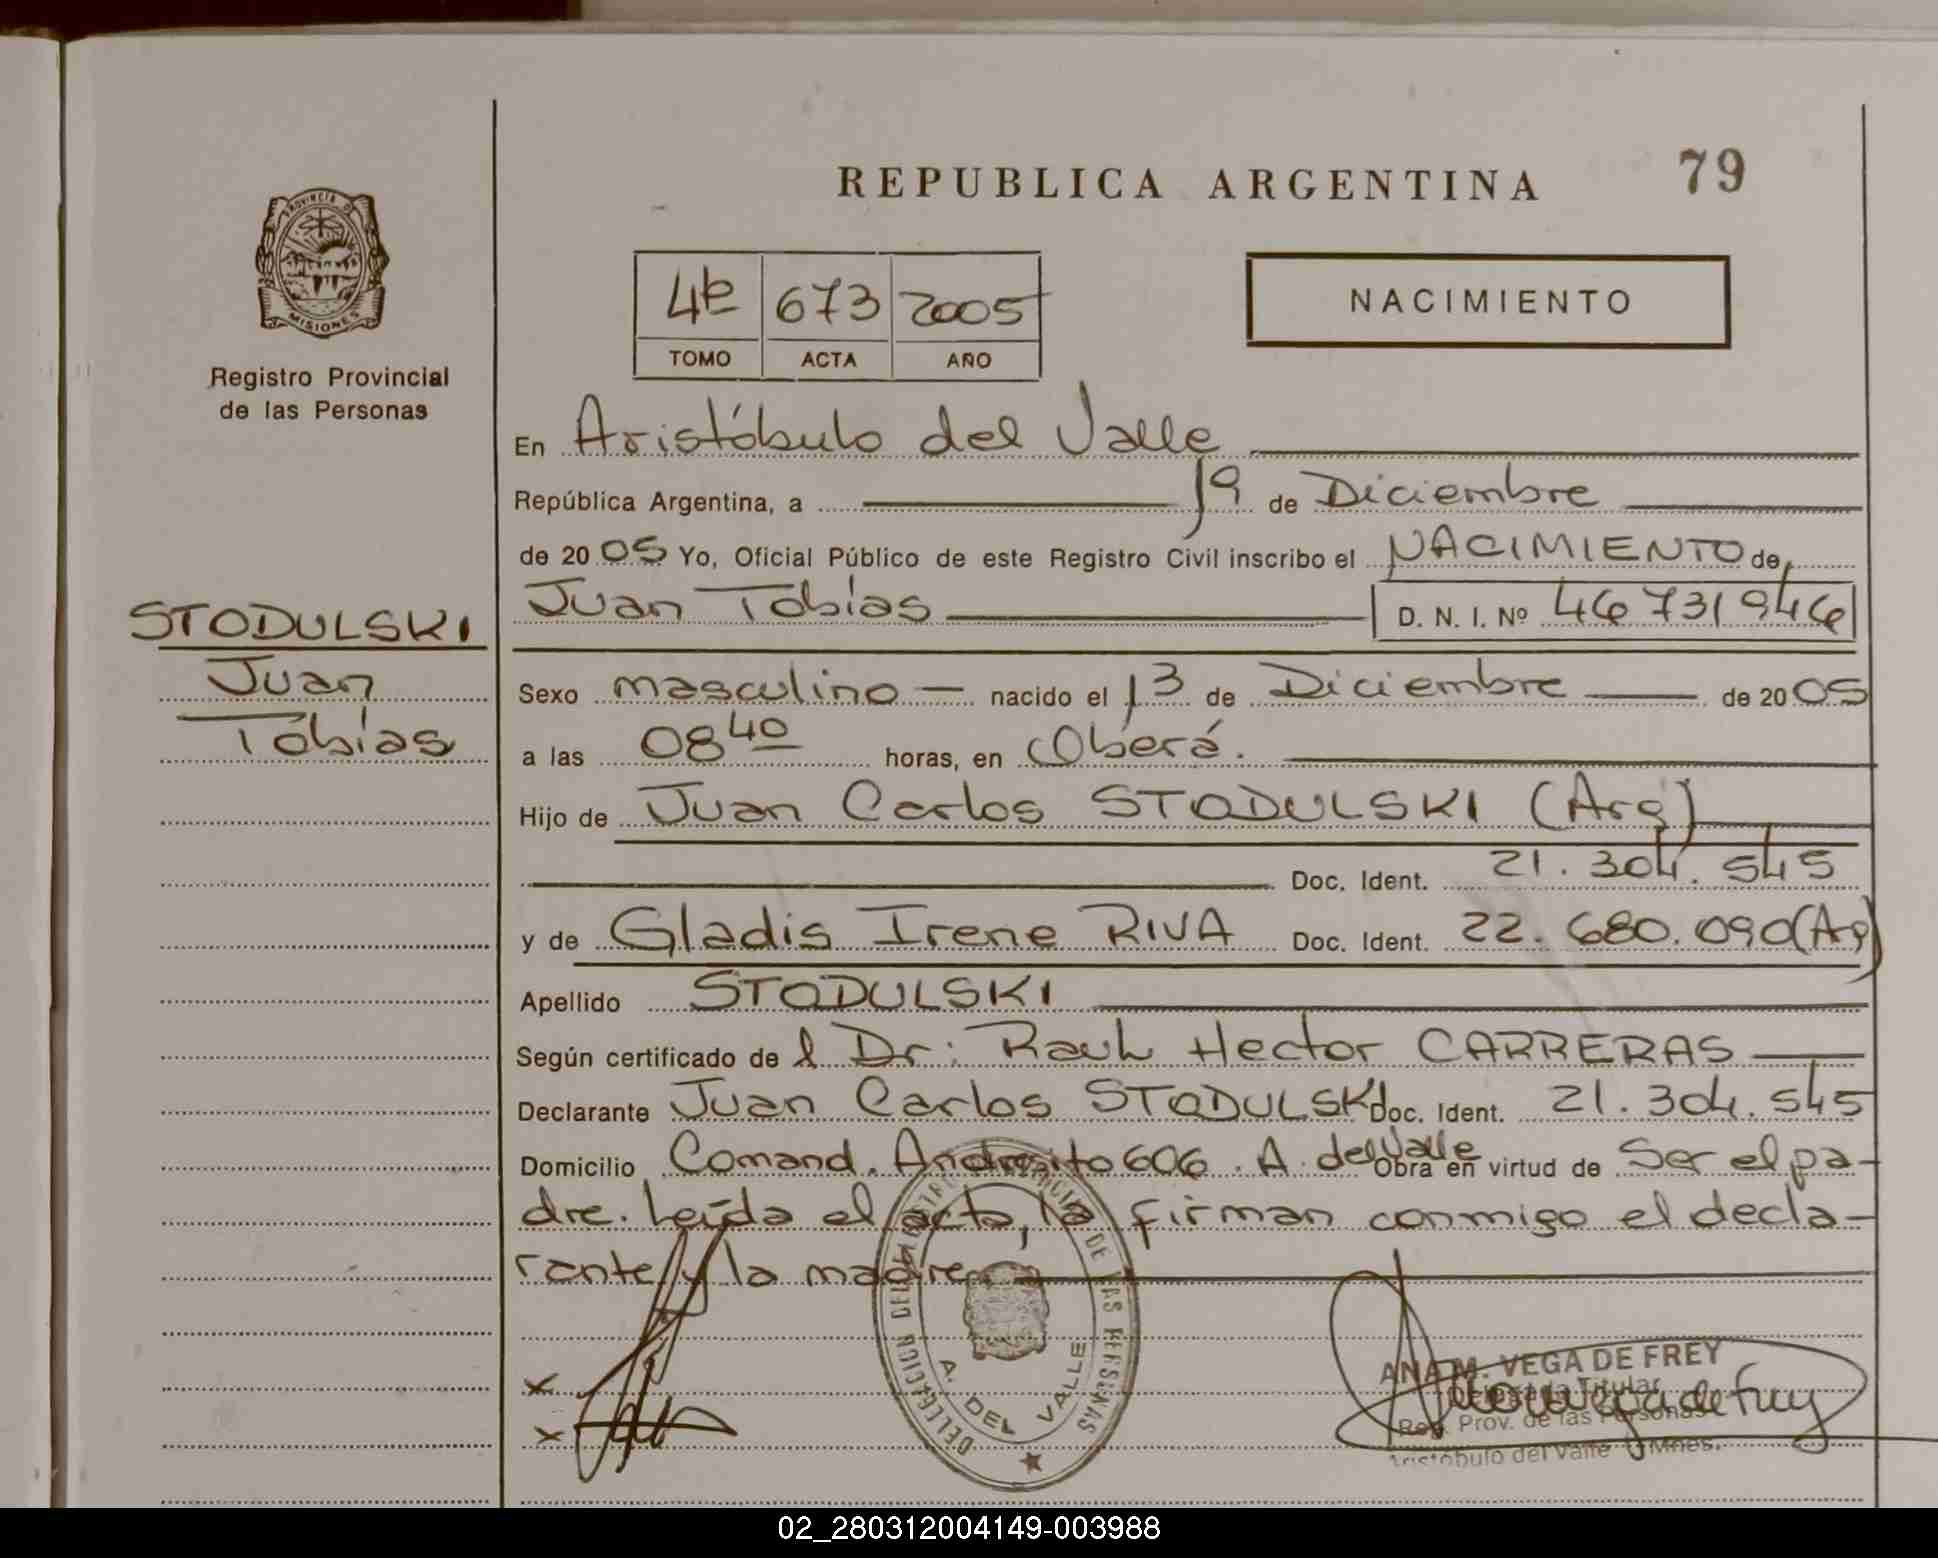 REPUBLICA ARGENTINA
79
PROVINCIA DE
MISIONES
Registro Provincial
de las Personas
4º 673 2005
TOMO ACTA AÑO
NACIMIENTO
En Aristóbulo del Valle
República Argentina, a 19 de Diciembre
de 20 05 Yo, Oficial Público de este Registro Civil inscribo el NACIMIENTO de
Juan Tobías D. N. I. Nº 46731946
STODULSKI
Juan
Tobías
Sexo masculino nacido el 13 de Diciembre de 20 05
a las 08 40 horas, en Oberá.
Hijo de Juan Carlos STODULSKI (Arg)
Doc. Ident. 21.304.545
y de Gladis Irene RIVA Doc. Ident. 22.680.090 (Arg)
Apellido STODULSKI
Según certificado de l Dr: Raul Hector CARRERAS
Declarante Juan Carlos STODULSKI Doc. Ident. 21.304.545
Domicilio Comand. Andresito 606. A. del Valle Obra en virtud de Ser el pa-
dre. Leída el acta, la firman conmigo el decla-
rante y la madre.
DELEGACION DEL REGISTRO PROVINCIAL DE LAS PERSONAS
A. DEL VALLE
x
x
ANA M. VEGA DE FREY
Delegada Titular
Reg. Prov. de las Personas
Aristóbulo del Valle Mnes.
02_280312004149-003988